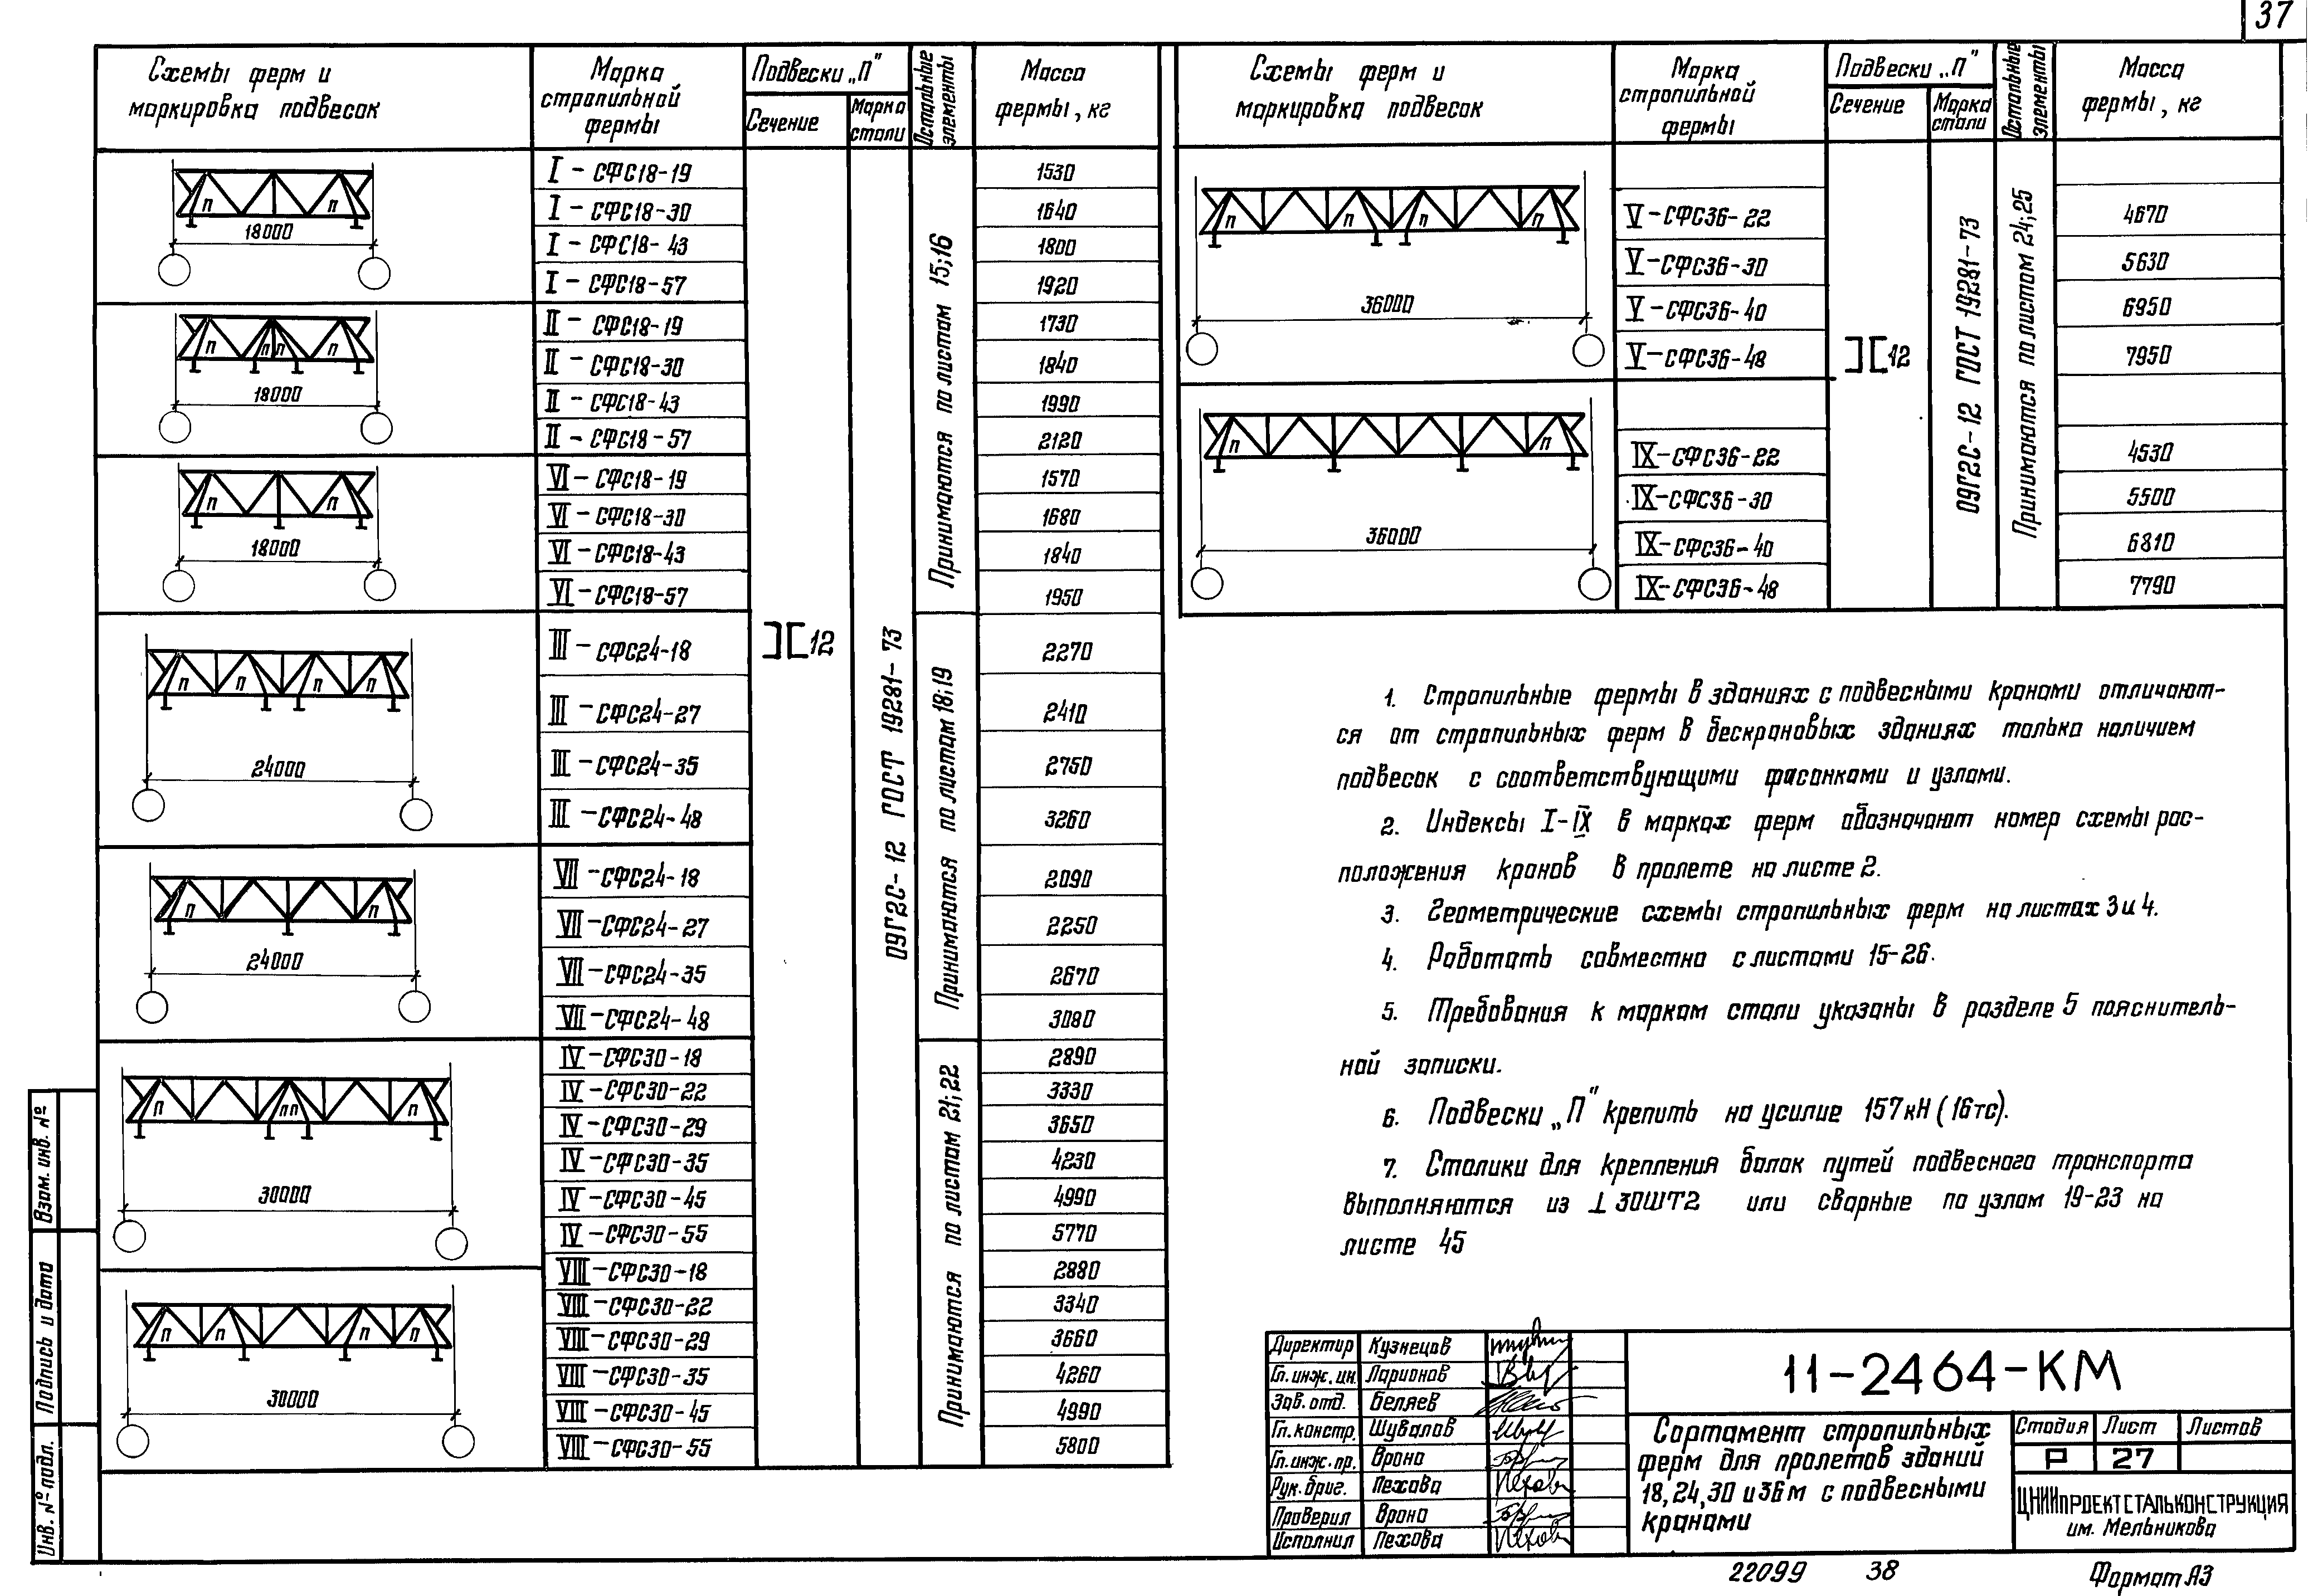 37
Схемы ферм и
маркировка подвесок
Марка
стропильной
фермы
Подвески „П"
Сечение
Марка
стали
Остальные
элементы
Масса
фермы, кг
П П
18000
I - СФС18-19 1530
I - СФС18-30 1640
I - СФС18-43 1800
I - СФС18-57 1920
П П П П
18000
II - СФС18-19 1730
II - СФС18-30 1840
II - СФС18-43 1990
II - СФС18-57 2120
П П
18000
VI - СФС18-19 1570
VI - СФС18-30 1680
VI - СФС18-43 1840
VI - СФС18-57 1950
Принимаются по листам 15;16
П П П П
24000
III - СФС24-18 2270
III - СФС24-27 2410
III - СФС24-35 2750
III - СФС24-48 3260
П П
24000
VII - СФС24-18 2090
VII - СФС24-27 2250
VII - СФС24-35 2670
VII - СФС24-48 3080
Принимаются по листам 18;19
][12
09Г2С-12 ГОСТ 19281-73
П П П П
30000
IV - СФС30-18 2890
IV - СФС30-22 3330
IV - СФС30-29 3650
IV - СФС30-35 4230
IV - СФС30-45 4990
IV - СФС30-55 5770
П П П П
30000
VIII - СФС30-18 2880
VIII - СФС30-22 3340
VIII - СФС30-29 3660
VIII - СФС30-35 4260
VIII - СФС30-45 4990
VIII - СФС30-55 5800
Принимаются по листам 21;22
Схемы ферм и
маркировка подвесок
Марка
стропильной
фермы
Подвески „П"
Сечение
Марка
стали
Остальные
элементы
Масса
фермы, кг
П П П П
36000
V - СФС36-22 4670
V - СФС36-30 5630
V - СФС36-40 6950
V - СФС36-48 7950
П П
36000
IX - СФС36-22 4530
IX - СФС36-30 5500
IX - СФС36-40 6810
IX - СФС36-48 7790
][12
09Г2С-12 ГОСТ 19281-73
Принимаются по листам 24;25
1. Стропильные фермы в зданиях с подвесными кранами отличают-
ся от стропильных ферм в бескрановых зданиях только наличием
подвесок с соответствующими фасонками и узлами.
2. Индексы I-IX в марках ферм обозначают номер схемы рас-
положения кранов в пролете на листе 2.
3. Геометрические схемы стропильных ферм на листах 3 и 4.
4. Работать совместно с листами 15-26.
5. Требования к маркам стали указаны в разделе 5 пояснитель-
ной записки.
6. Подвески „П" крепить на усилие 157кН (16тс).
7. Столики для крепления балок путей подвесного транспорта
выполняются из ⊥30ШТ2 или сварные по узлам 19-23 на
листе 45
Директир Кузнецов
Гл. инж. ин. Ларионов
Зав. отд. Беляев
Гл. констр. Шувалов
Гл. инж. пр. Врона
Рук. бриг. Пехова
Проверил Врона
Исполнил Пехова
11-2464-КМ
Сортамент стропильных
ферм для пролетов зданий
18, 24, 30 и 36 м с подвесными
кранами
Стадия Лист Листов
Р 27
ЦНИИПРОЕКТСТАЛЬКОНСТРУКЦИЯ
им. Мельникова
Взам. инв. №
Подпись и дата
Инв. № подл.
22099 38 Формат А3